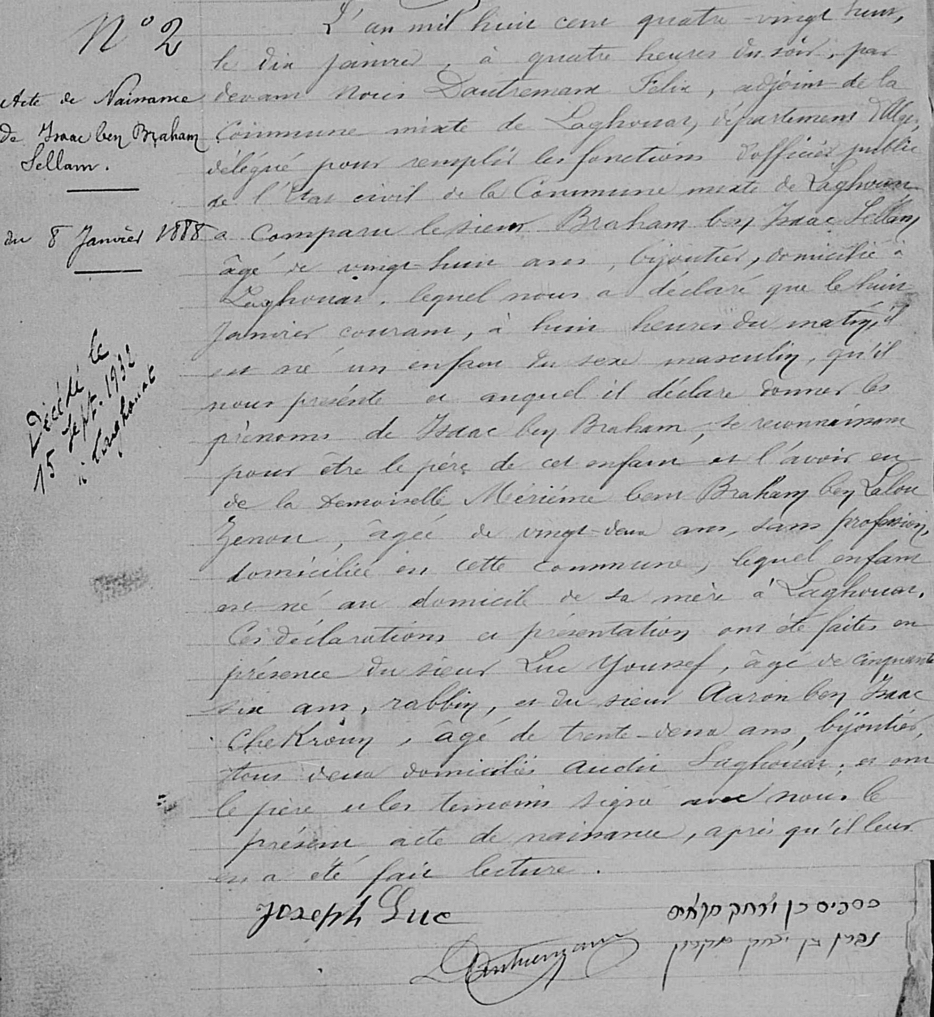 N° 2
Acte de Naissance
de Isaac ben Braham
Sellam.
du 8 Janvier 1888
Décédé le
15 Sept. 1932
à Laghouat
L'an mil huit cent quatre-vingt huit,
le dix janvier, à quatre heures du soir, par
devant nous Dautremant Felix, adjoint de la
Commune mixte de Laghouat, département d'Alger,
délégué pour remplir les fonctions d'officier public
de l'Etat civil de la Commune mixte de Laghouat
a comparu le sieur Braham ben Isaac Sellam
âgé de vingt-huit ans, bijoutier, domicilié à
Laghouat, lequel nous a déclaré que le huit
Janvier courant, à huit heures du matin, il
est né un enfant du sexe masculin, qu'il
nous présente et auquel il déclare donner les
prénoms de Isaac ben Braham, se reconnaissant
pour être le père de cet enfant et l'avoir eu
de la Demoiselle Mériéme bent Braham ben Lalou
Zenou, âgée de vingt-deux ans, sans profession,
domiciliée en cette commune, lequel enfant
est né au domicile de sa mère à Laghouat.
Ces déclarations et présentation ont été faites en
présence du sieur Luc Youssef, âgé de cinquante
six ans, rabbin, et du sieur Aaron ben Isaac
Chekroun, âgé de trente-deux ans, bijoutier,
tous deux domiciliés audit Laghouat, et ont
le père et les témoins signé avec nous le
présent acte de naissance, après qu'il leur
en a été fait lecture.
Joseph Luc